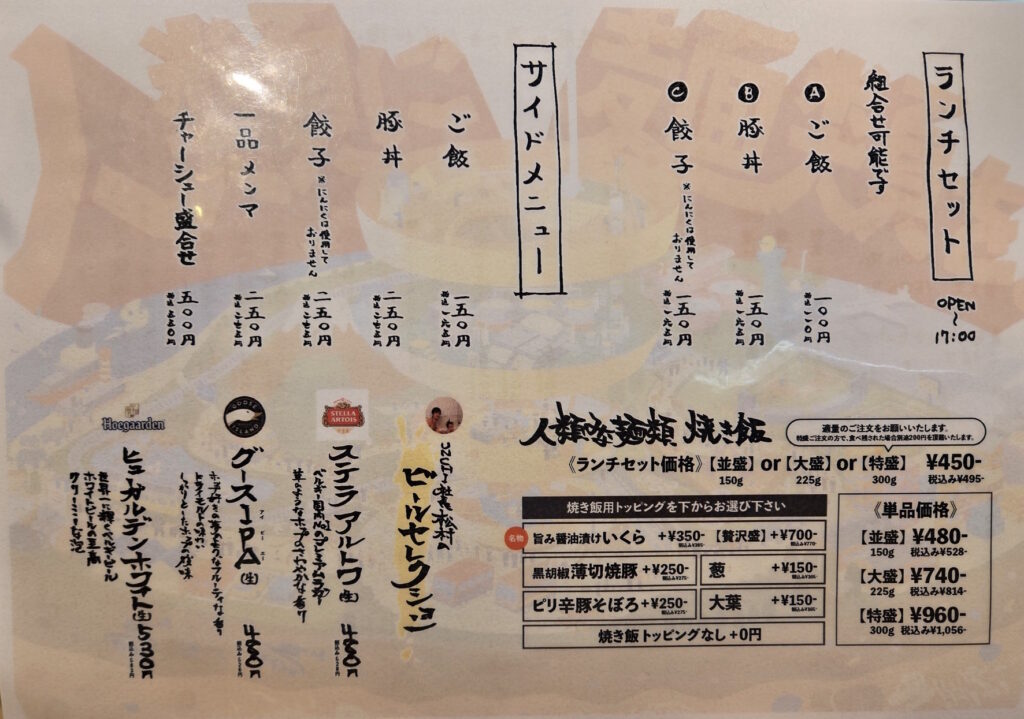 ランチセット
OPEN
〜
17:00
組合せ可能です
A ご飯 一〇〇円
税込一一〇円
B 豚丼 一五〇円
税込一六五円
C 餃子 一五〇円
※にんにくは使用して
おりません
税込一六五円
サイドメニュー
ご飯 一五〇円
税込一六五円
豚丼 二五〇円
税込二七五円
餃子 二五〇円
※にんにくは使用して
おりません
税込二七五円
一品メンマ 二五〇円
税込二七五円
チャーシュー盛合せ 五〇〇円
税込五五〇円
人類みな麺類 焼き飯
適量のご注文をお願いいたします。
特盛ご注文の方で、食べ残された場合別途200円を頂戴いたします。
《ランチセット価格》【並盛】or【大盛】or【特盛】 ¥450-
150g 225g 300g 税込み¥495-
焼き飯用トッピングを下からお選び下さい
名物
旨み醤油漬けいくら +¥350- 【贅沢盛】+¥700-
税込み¥385- 税込み¥770-
黒胡椒薄切焼豚 +¥250-
税込み¥275-
葱 +¥150-
税込み¥165-
ピリ辛豚そぼろ +¥250-
税込み¥275-
大葉 +¥150-
税込み¥165-
焼き飯トッピングなし +0円
《単品価格》
【並盛】¥480-
150g 税込み¥528-
【大盛】¥740-
225g 税込み¥814-
【特盛】¥960-
300g 税込み¥1,056-
社長 松村の
ビールセレクション
STELLA
ARTOIS
ステラアルトワ(生) 480円
ベルギー国内No.1のプレミアムラガー
草のようなホップのさわやかな香り
GOOSE
ISLAND
グースIPA(生) 480円
アイ ピー エー
ホップ好きの夢のようなフルーティな香り
ドライモルトの味わい
しっかりとしたホップの後味
Hoegaarden
ヒューガルデンホワイト(生) 530円
世界一に輝くベルギービール
ホワイトビールの王高
クリーミーな泡